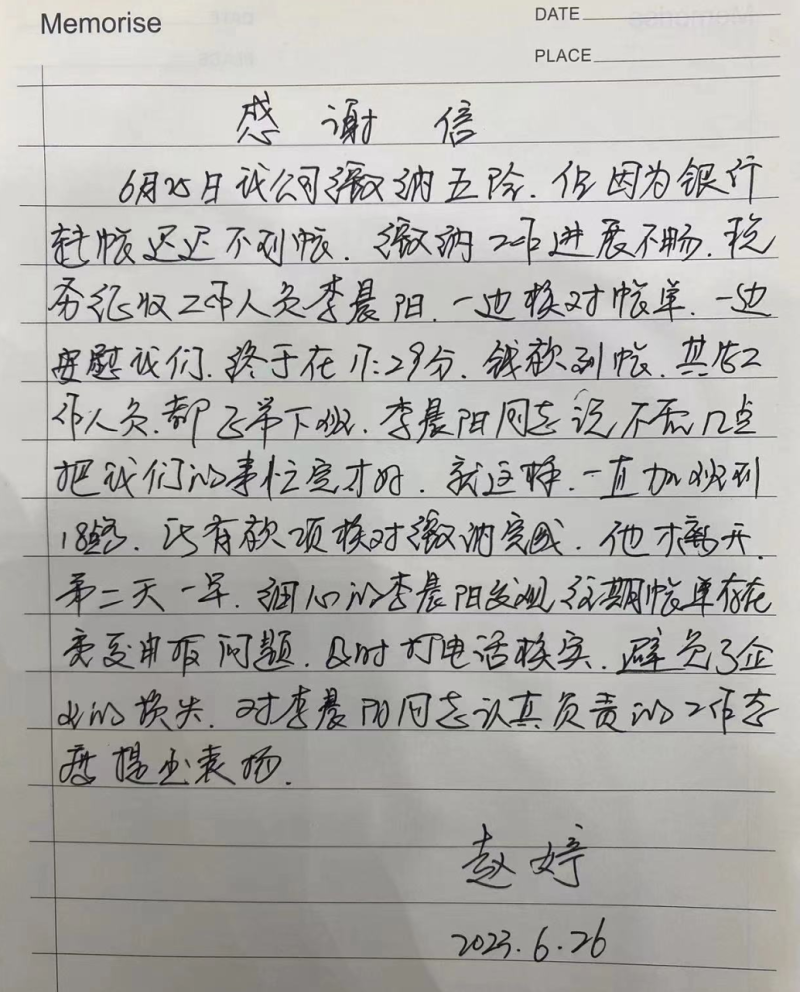 Memorise
DATE
PLACE
感谢信
6月25日我公司缴纳五险.但因为银行
转帐迟迟不到帐.缴纳工作进展不畅.税
务征收工作人员李晨阳.一边核对帐单.一边
安慰我们.终于在17:29分.钱款到帐.其右工
作人员.都正常下班.李晨阳同志说不管几点
把我们的事忙完才好.就这样.一直加班到
18点.所有款项核对缴纳完成.他才离开.
第二天一早.细心的李晨阳发现往期帐单存在
重复申报问题.及时打电话核实.避免了企
业的损失.对李晨阳同志认真负责的工作态
度提出表扬.
赵婷
2023.6.26